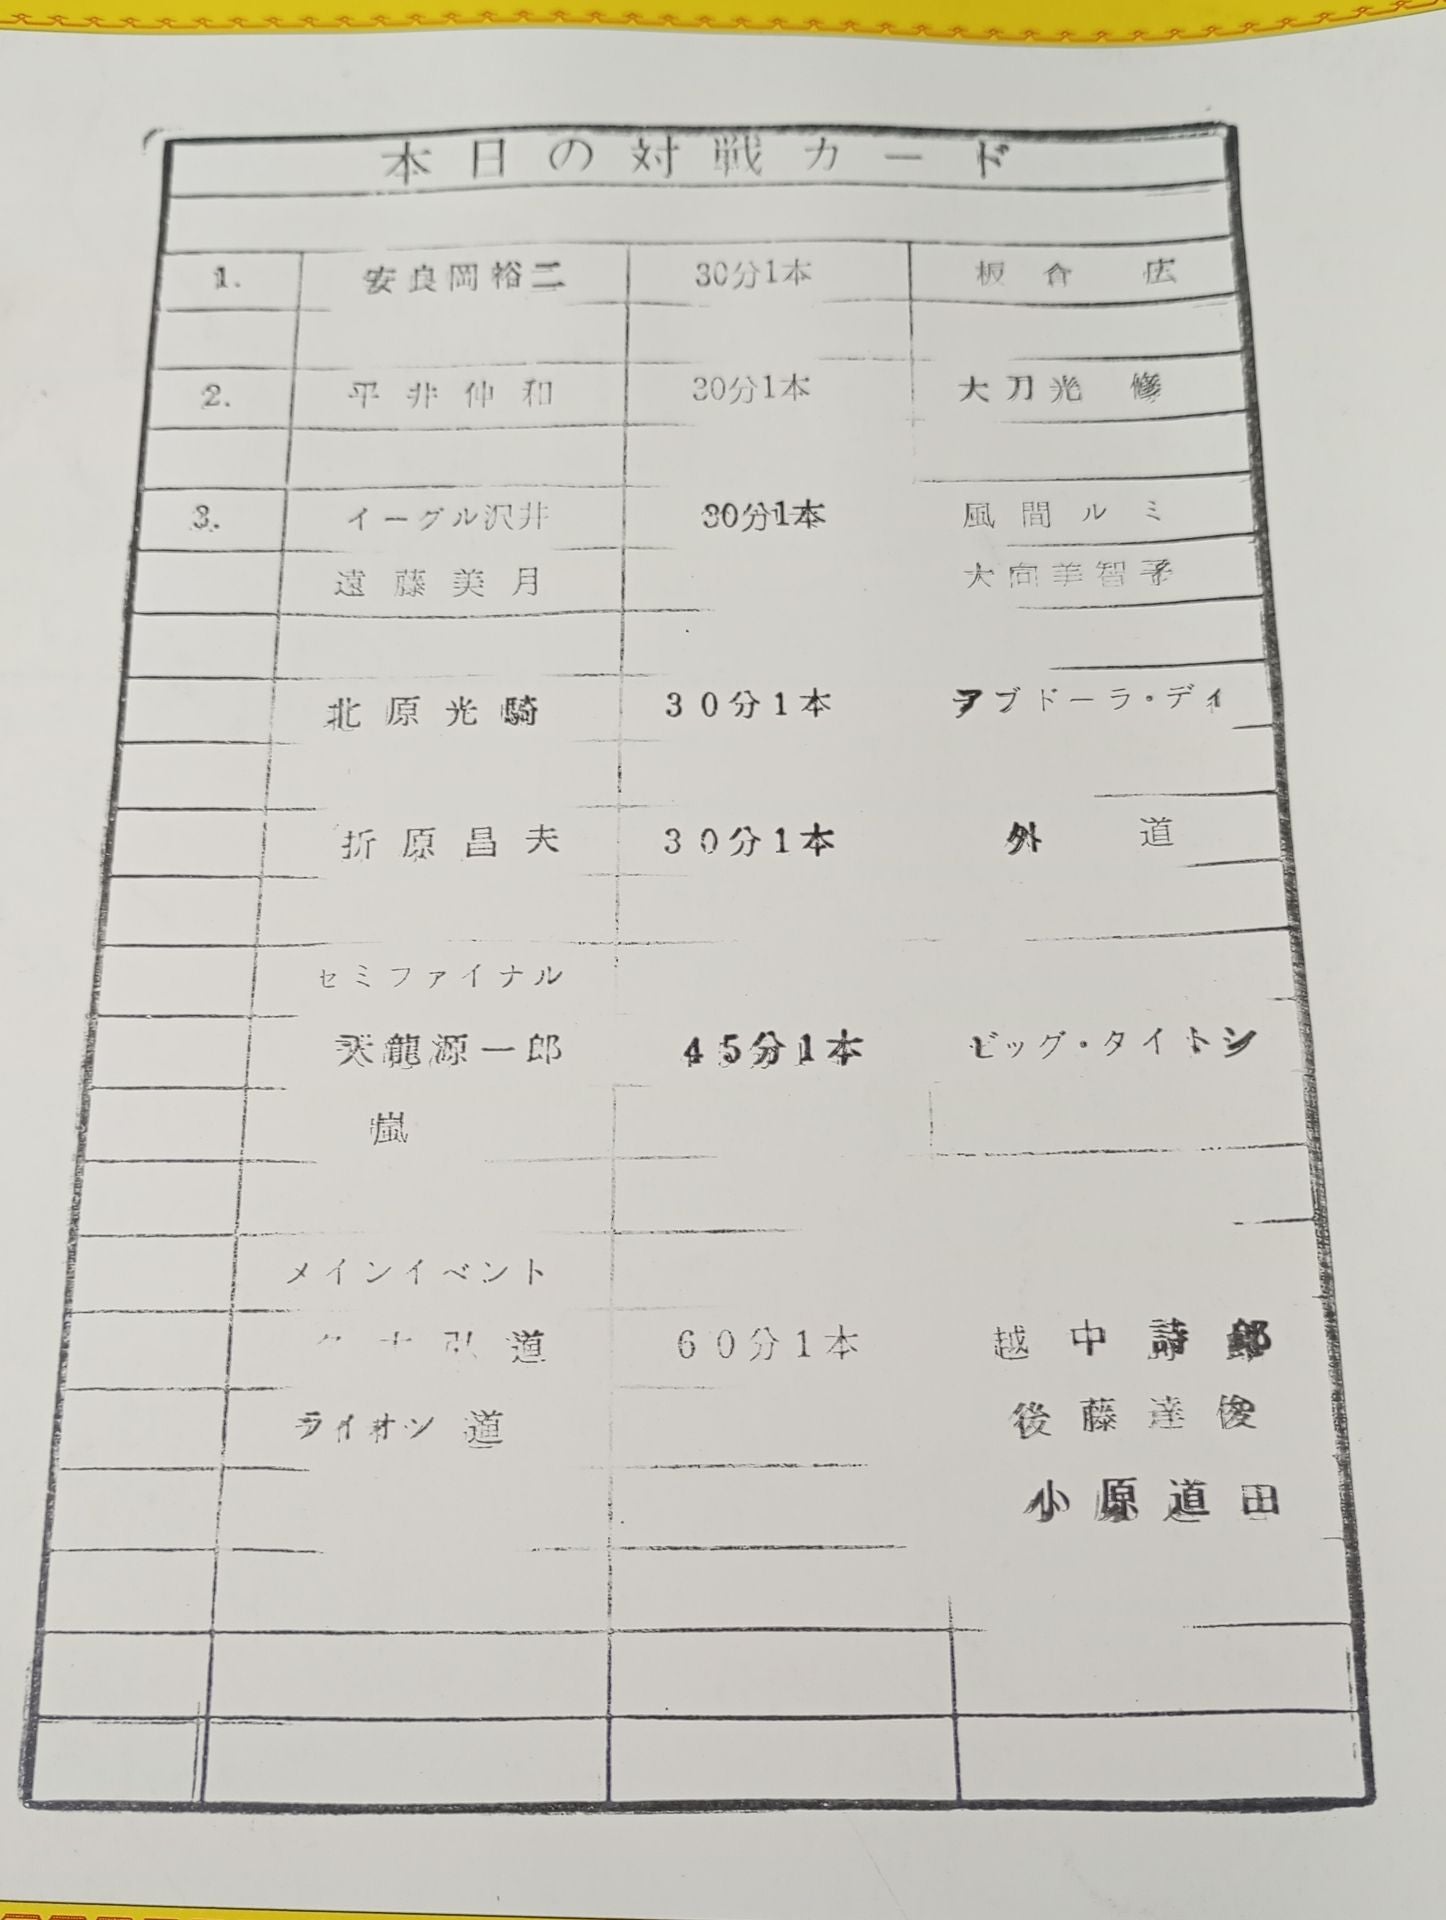 本日の対戦カード
1. 安良岡裕二 30分1本 板倉広
2. 平井伸和 30分1本 大刀光修
3. イーグル沢井 30分1本 風間ルミ
遠藤美月 大向美智子
北原光騎 30分1本 アブドーラ・ディ
折原昌夫 30分1本 外道
セミファイナル
天龍源一郎 45分1本 ビッグ・タイトン
嵐
メインイベント
弘道 60分1本 越中詩郎
ライオン道 後藤達俊
小原道由